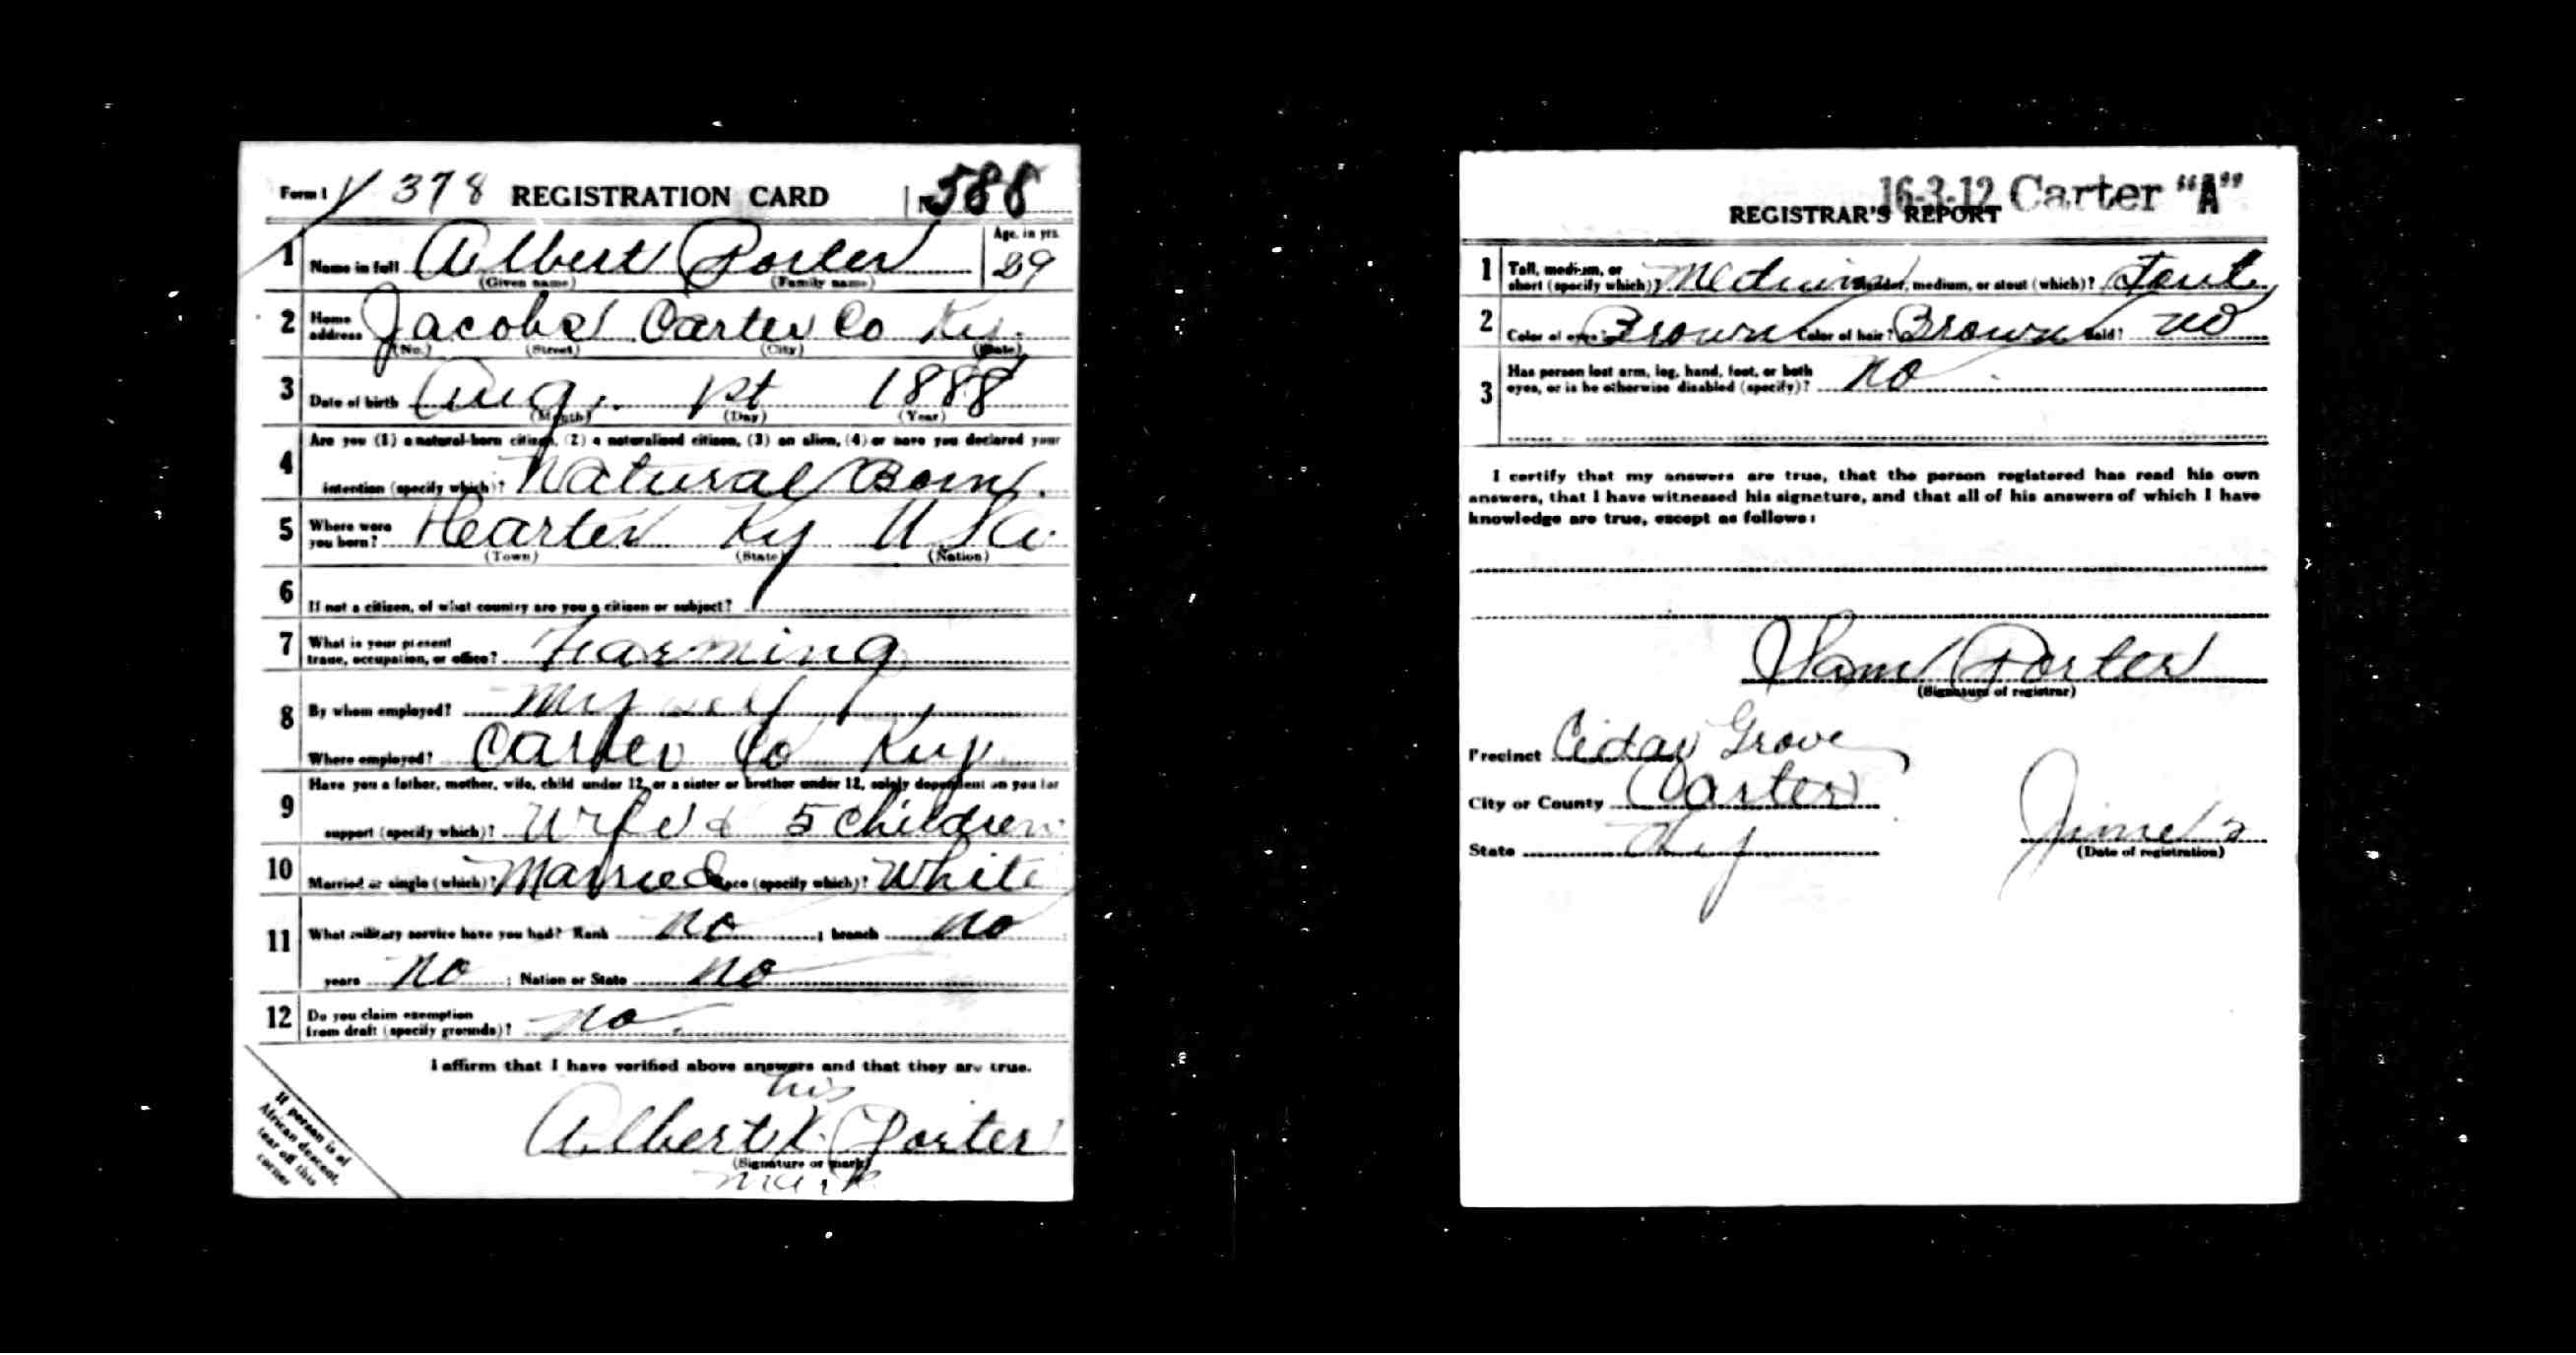 Form 1 378 REGISTRATION CARD No. 588
1 Name in full Albert Porter Age, in yrs. 29
(Given name) (Family name)
2 Home address Jacobs Carter Co Ky.
(No.) (Street) (City) (State)
3 Date of birth Aug. 1st 1888
(Month) (Day) (Year)
4 Are you (1) a natural-born citizen, (2) a naturalized citizen, (3) an alien, (4) or have you declared your
intention (specify which)? Natural Born.
5 Where were you born? Carter Ky U.S.A.
(Town) (State) (Nation)
6 If not a citizen, of what country are you a citizen or subject?
7 What is your present trade, occupation, or office? Farming
8 By whom employed? My self
Where employed? Carter Co Ky
9 Have you a father, mother, wife, child under 12, or a sister or brother under 12, solely dependent on you for
support (specify which)? Wife & 5 children
10 Married or single (which)? Married Race (specify which)? White
11 What military service have you had? Rank no ; branch no
years no ; Nation or State no
12 Do you claim exemption from draft (specify grounds)? no.
I affirm that I have verified above answers and that they are true.
his
Albert X Porter
(Signature or mark)
mark
If person is of
African descent,
tear off this
corner
16-3-12 Carter "A"
REGISTRAR'S REPORT
1 Tall, medium, or short (specify which)? Medium Slender, medium, or stout (which)?
2 Color of eyes? Brown Color of hair? Brown Bald? no
3 Has person lost arm, leg, hand, foot, or both
eyes, or is he otherwise disabled (specify)? no
I certify that my answers are true, that the person registered has read his own
answers, that I have witnessed his signature, and that all of his answers of which I have
knowledge are true, except as follows:
Sam Porter
(Signature of registrar)
Precinct Cedar Grove
City or County Carter
State Ky
June
(Date of registration)